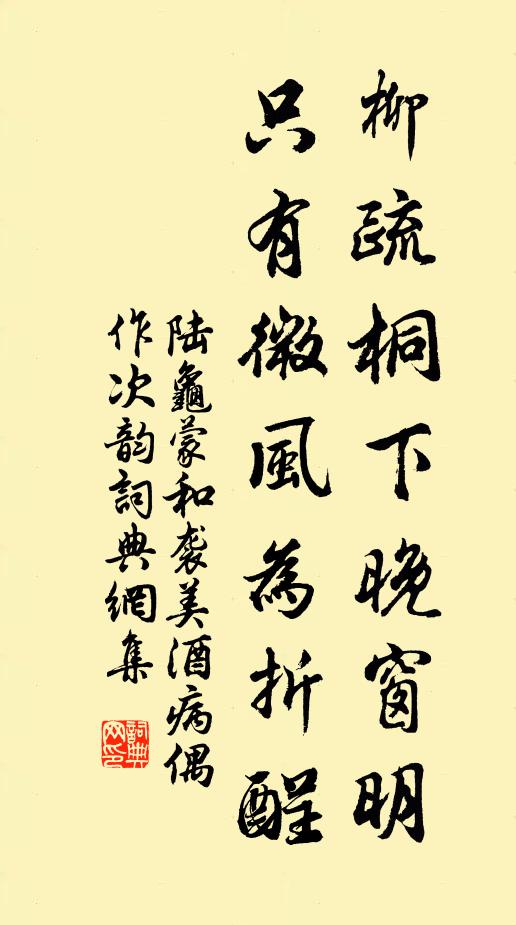 柳疏桐下晚窗明
只有微風為折酲
陆龜蒙和袭美酒病偶
作次韵詞典網集
詞典